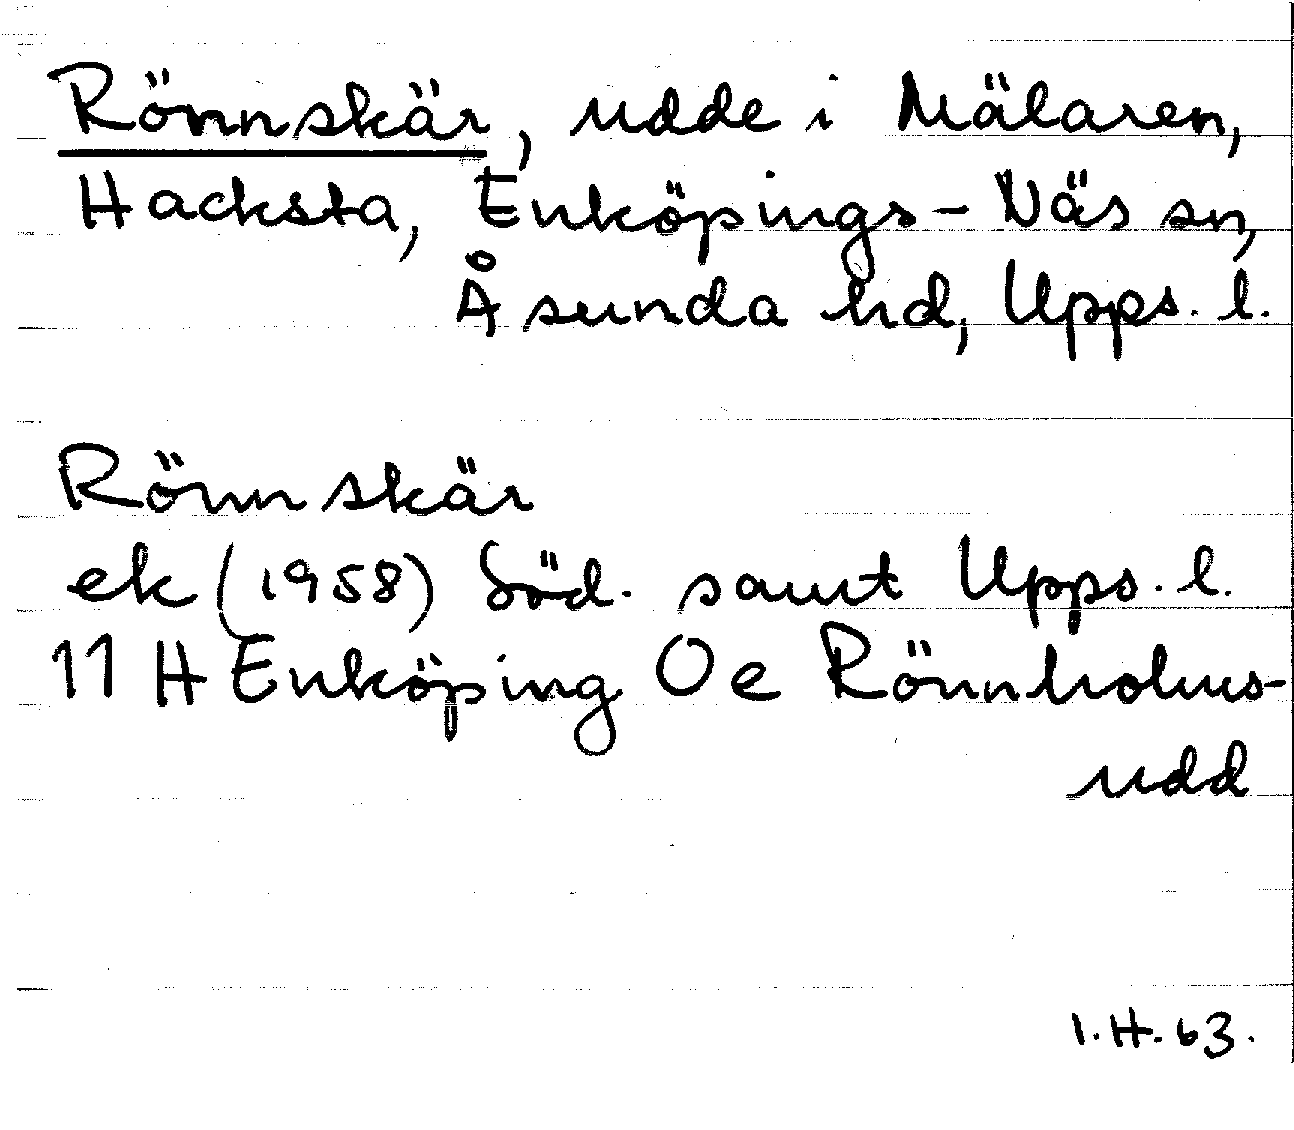 Rönnskär, udde i Mälaren,
Hacksta, Enköpings-Näs sn,
Åsunda hd, Upps. l.
Rönnskär
ek (1958) Söd. samt Upps. l.
11 H Enköping Oe Rönnholms-
udd
I.H.63.